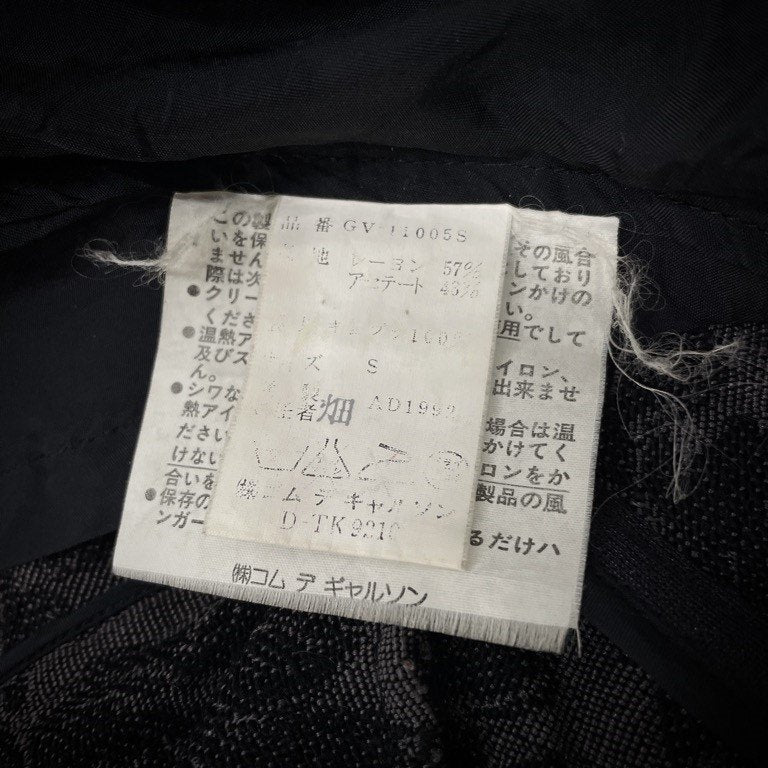 品番 GV-11005S
地 レーヨン 57%
アセテート 43%
サイズ S
畑 AD1992
㈱コム デ ギャルソン
D-TK 9210
この
をせ
いま
際は
クリー
くださ
温熱ア
及びス
ん。
シワな
熱アイ
ださい
けない
合いを
保存の
ンガー
製
保
ん
次
その風合
しており
ンかけの
い。
使用でして
イロン、
出来ませ
場合は温
かけてく
ロンをか
製品の風
るだけハ
㈱コム デ ギャルソン